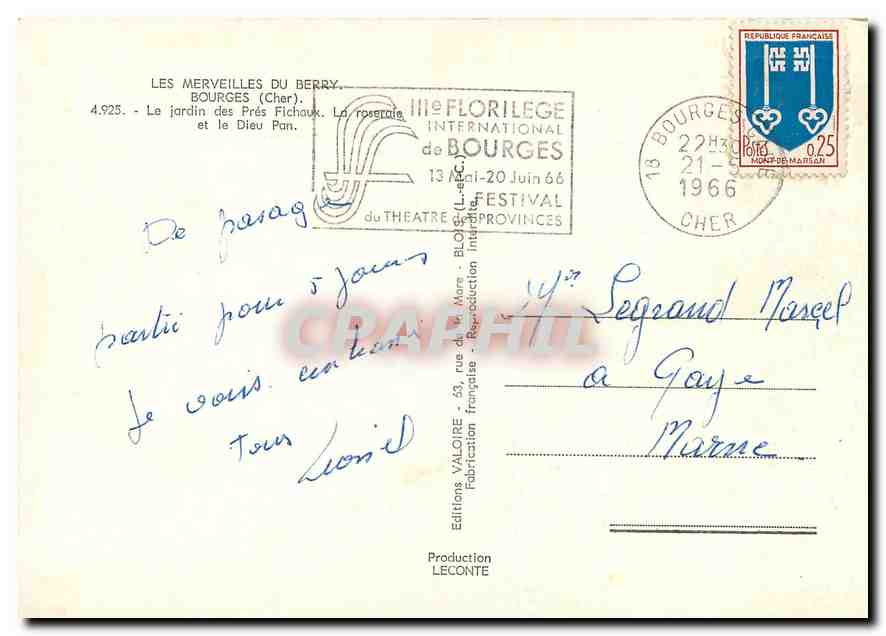 LES MERVEILLES DU BERRY.
BOURGES (Cher).
4.925. - Le jardin des Prés Fichaux. La roseraie
et le Dieu Pan.
IIIe FLORILEGE
INTERNATIONAL
de BOURGES
13 Mai-20 Juin 66
FESTIVAL
du THEATRE des PROVINCES
REPUBLIQUE FRANÇAISE
POSTES 0,25
MONT-DE-MARSAN
18 BOURGES
22H30
21-5
1966
CHER
De passage
partie pour 5 jours
Je vous embrasse
Tous Lionel
Editions VALOIRE - 63, rue de la Mare - BLOIS (L.-et-C.)
Fabrication française - Reproduction interdite
Mr Legrand Marcel
a Gaye
Marne
Production
LECONTE
CPAPHIL